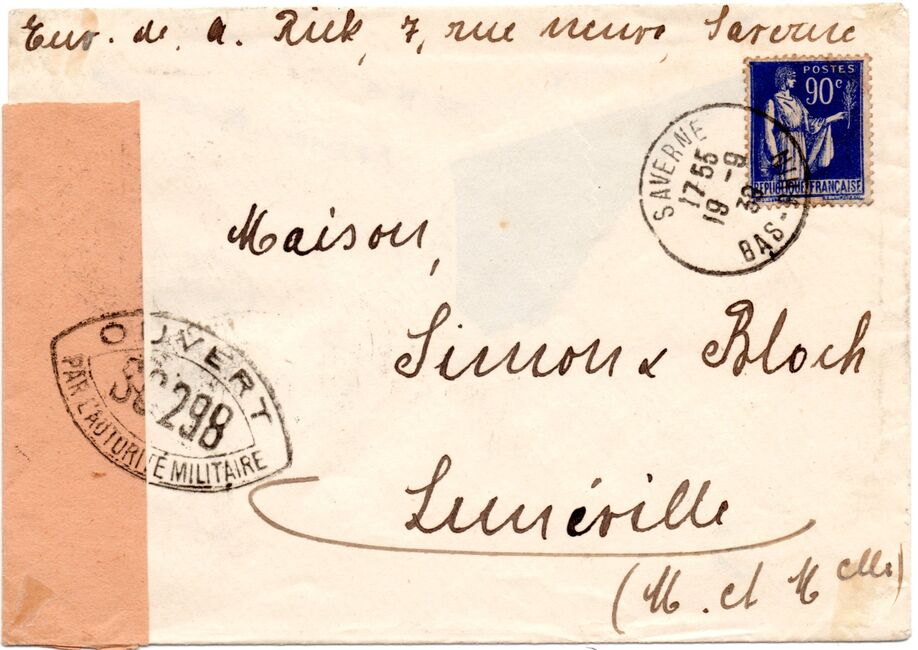 Env. de A. Rick, 7, rue neuve, Saverne
POSTES
90c
REPUBLIQUE FRANÇAISE
SAVERNE
17 55
19 -9
39
BAS-RHIN
Maison,
Simon & Bloch
Lunéville
(M. et Melle)
OUVERT
298
PAR L'AUTORITÉ MILITAIRE